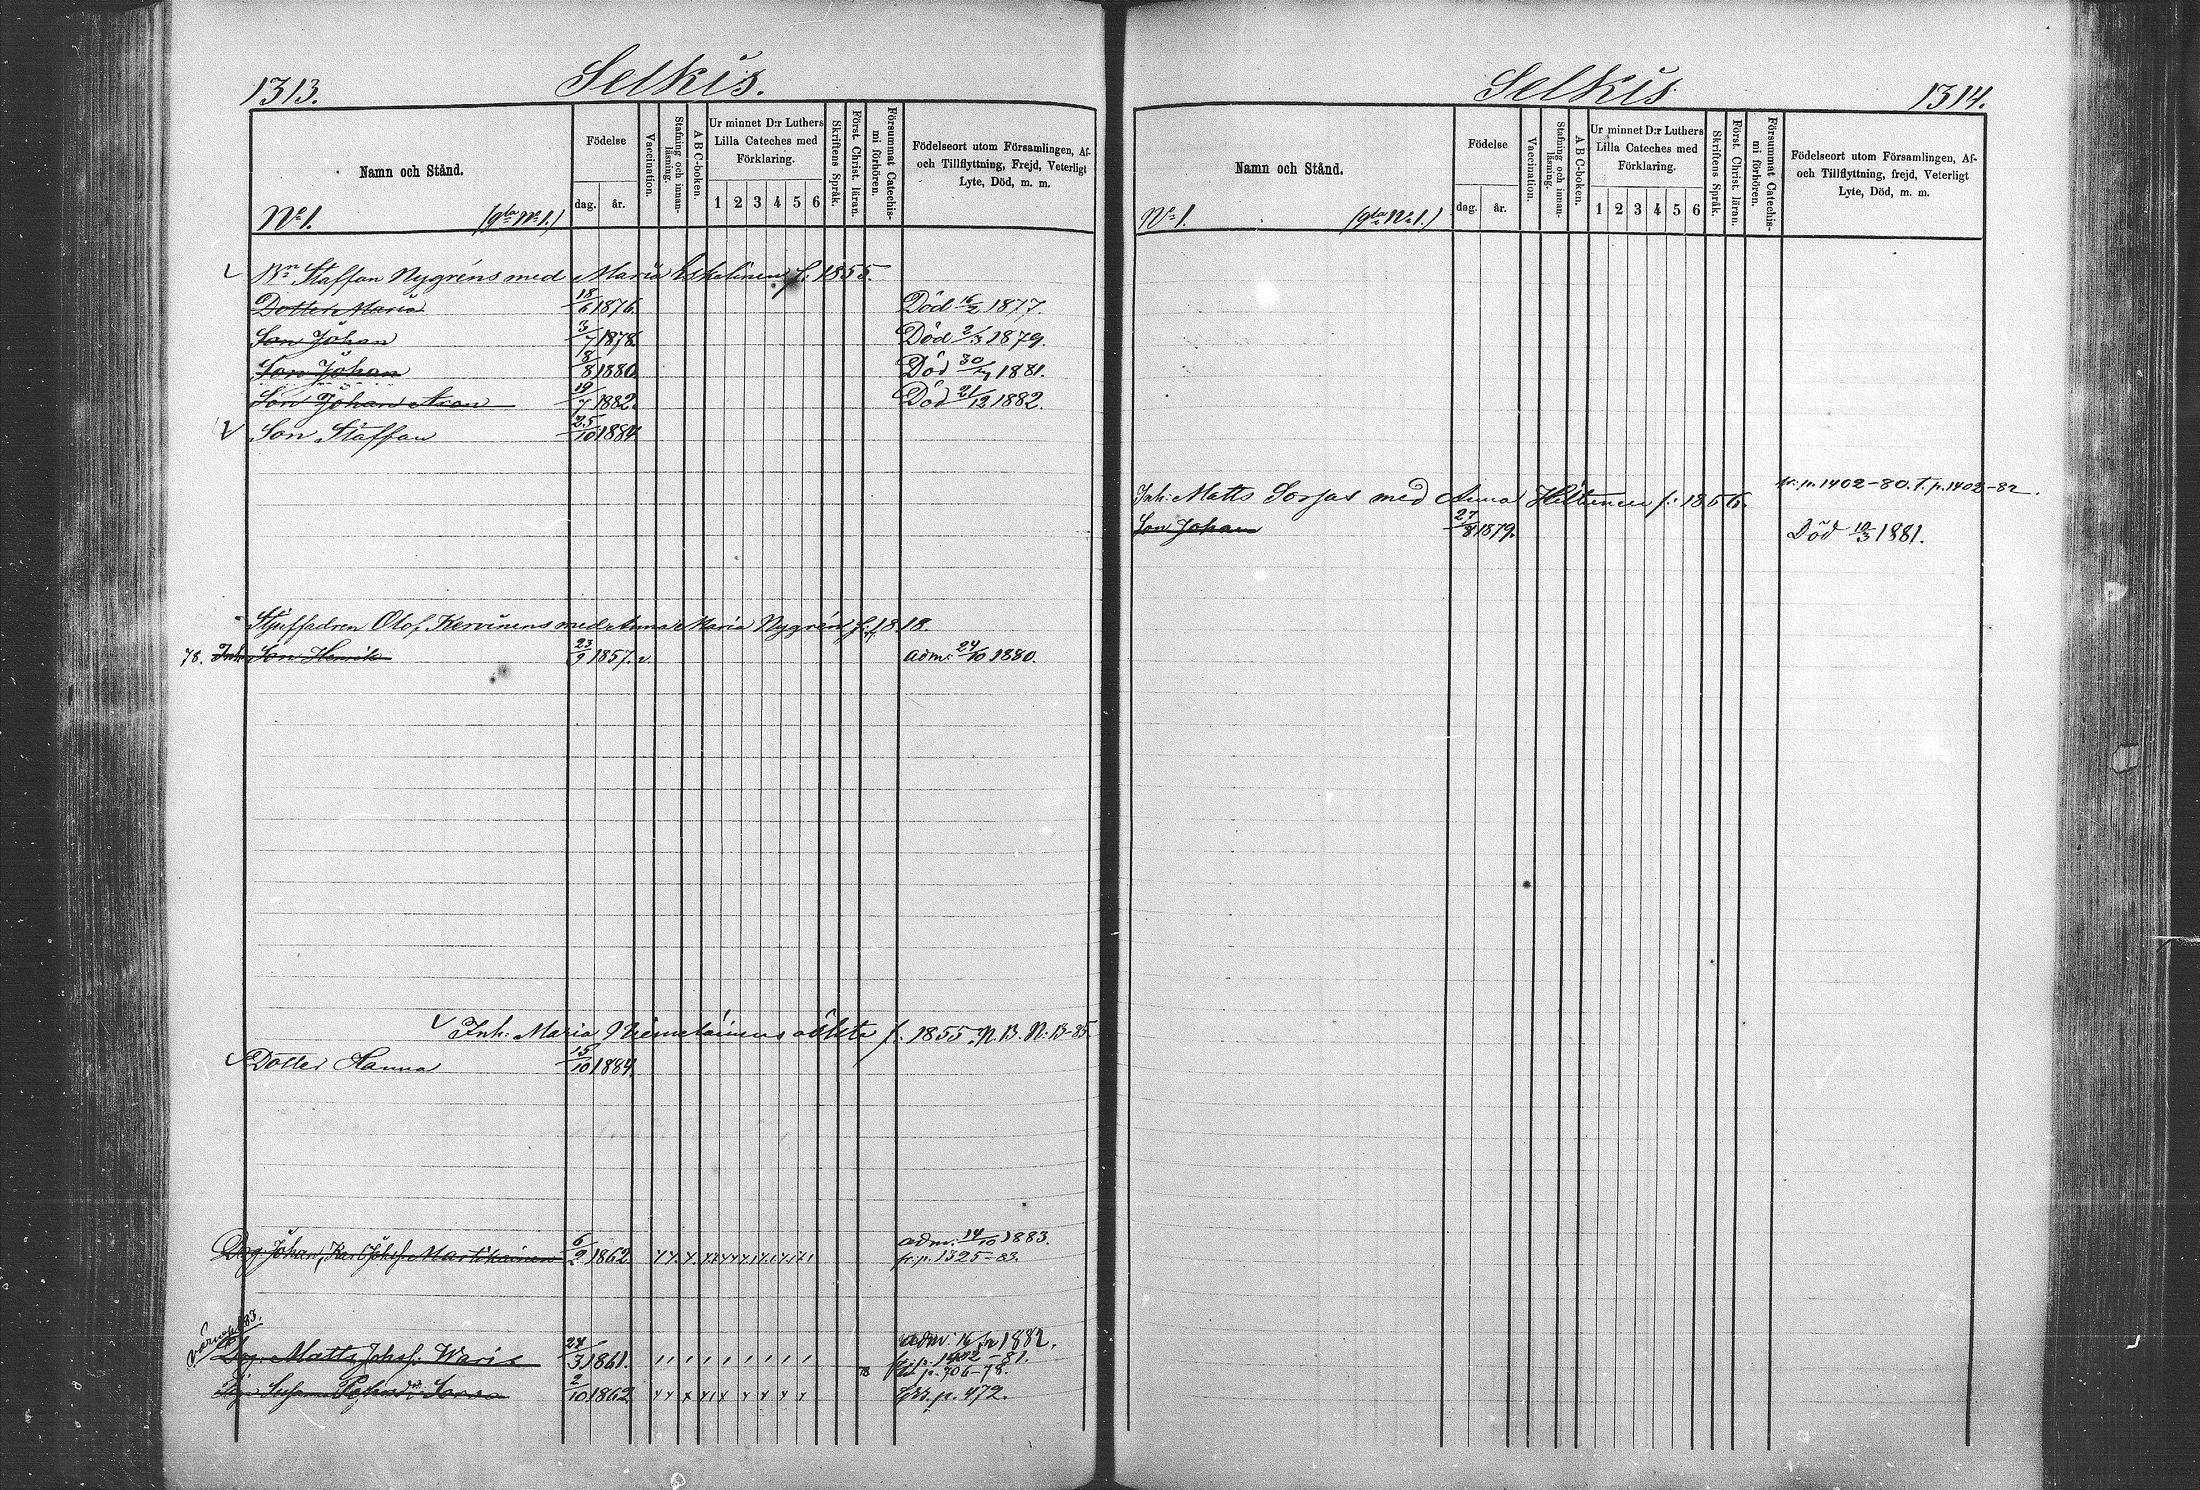 1313.
Selkis.
Namn och Stånd.
Födelse
dag.
år.
Vaccination.
Stafning och innan-
läsning.
A B C-boken.
Ur minnet D:r Luthers
Lilla Cateches med
Förklaring.
1 2 3 4 5 6
Skriftens Språk.
Först. Christ. läran.
Försummat Catechis-
mi förhören.
Födelseort utom Församlingen, Af-
och Tillflyttning, Frejd, Veterligt
Lyte, Död, m. m.
No 1. (gla No 1.)
Bn Staffan Nygréns med Maria Eskelinen f: 1855.
Dotter Maria 18/6 1876. Död 16/2 1877.
Son Johan 3/7 1878. Död 2/3 1879.
Son Johan 18/8 1880. Död 30/ 1881.
Son Johan Aron 19/7 1882. Död 21/12 1882.
Son Staffan 25/10 1884
Stjuffadren Olof Kervinens med Anna Maria Nygrén f. 1818.
78. Inh. Son Henrik 23/9 1857. v. adm: 24/10 1880.
Inh: Maria f. 1855. N. 13-85.
Dotter Hanna 15/10 1884.
Drg. Johan, Karl Johsf. Martikainen 6/2 1862 adm. 14/10 1883.
fr. p. 1325-83.
Drg. Matts Johsf. Waris 24/3 1861. adm. 16/ 1882.
-81.
78 p. 706-78.
2/10 1862 p. 472.
Selkis
1314.
Namn och Stånd.
Födelse
dag.
år.
Vaccination.
Stafning och innan-
läsning.
A B C-boken.
Ur minnet D:r Luthers
Lilla Cateches med
Förklaring.
1 2 3 4 5 6
Skriftens Språk.
Först. Christ läran.
Försummat Catechis-
mi förhören.
Födelseort utom Församlingen, Af-
och Tillflyttning, frejd, Veterligt
Lyte, Död, m. m.
No 1. (gla No 1.)
Inh: Matts Sorsas med Anna Hiltunen f: 1856. fr. p. 1402-80. T. p. 1402-82.
Son Johan 27/8 1879. Död 10/3 1881.